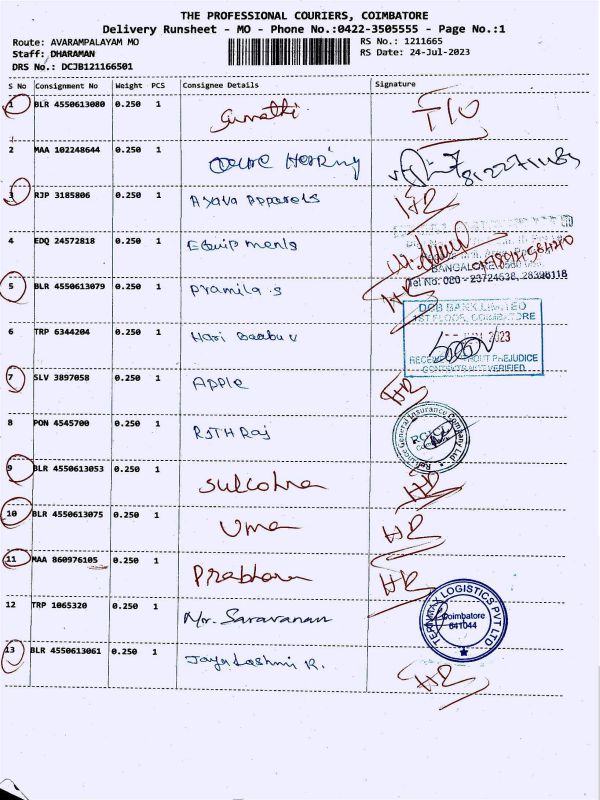 THE PROFESSIONAL COURIERS, COIMBATORE
Delivery Runsheet - MO - Phone No.:0422-3505555 - Page No.:1
Route: AVARAMPALAYAM MO RS No.: 1211665
Staff: DHARAMAN RS Date: 24-Jul-2023
DRS No.: DCJB121166501
S No Consignment No Weight PCS Consignee Details Signature
1 BLR 4550613080 0.250 1 Sumathi
2 MAA 102248644 0.250 1 Hearing
3 RJP 3185806 0.250 1 Apparels HR
4 EDQ 24572818 0.250 1 Equipments
BANGALORE
Tel No: 080 - 23724538, 28396118
5 BLR 4550613079 0.250 1 Pramila.S HR
DCB BANK LIMITED
1ST FLOOR, COIMBATORE
6 TRP 6344204 0.250 1 Hari Baabu V
2023
RECEIVED WITHOUT PREJUDICE
CONTENTS NOT VERIFIED
7 SLV 3897058 0.250 1 Apple HR
8 PON 4545700 0.250 1 Raj
Reliance General Insurance Company Ltd
RGICL
9 BLR 4550613053 0.250 1 HR
10 BLR 4550613075 0.250 1 Uma HR
11 MAA 860976105 0.250 1 HR
12 TRP 1065320 0.250 1 Mr. Saravanan
LOGISTICS PVT LTD
Coimbatore
641044
13 BLR 4550613061 0.250 1 Jayalashmi R. HR